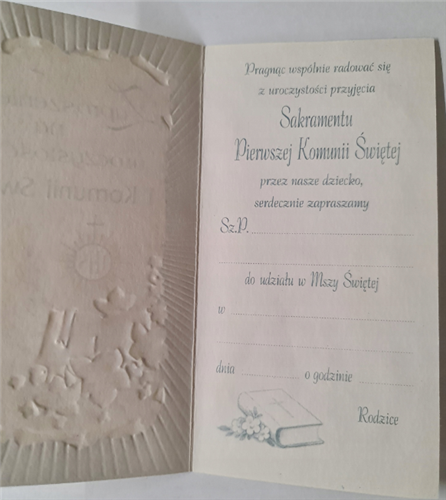 Zaproszenie
na
uroczystość
I Komunii Św
IHS
Pragnąc wspólnie radować się
z uroczystości przyjęcia
Sakramentu
Pierwszej Komunii Świętej
przez nasze dziecko,
serdecznie zapraszamy
Sz.P.
do udziału w Mszy Świętej
w
dnia o godzinie
Rodzice